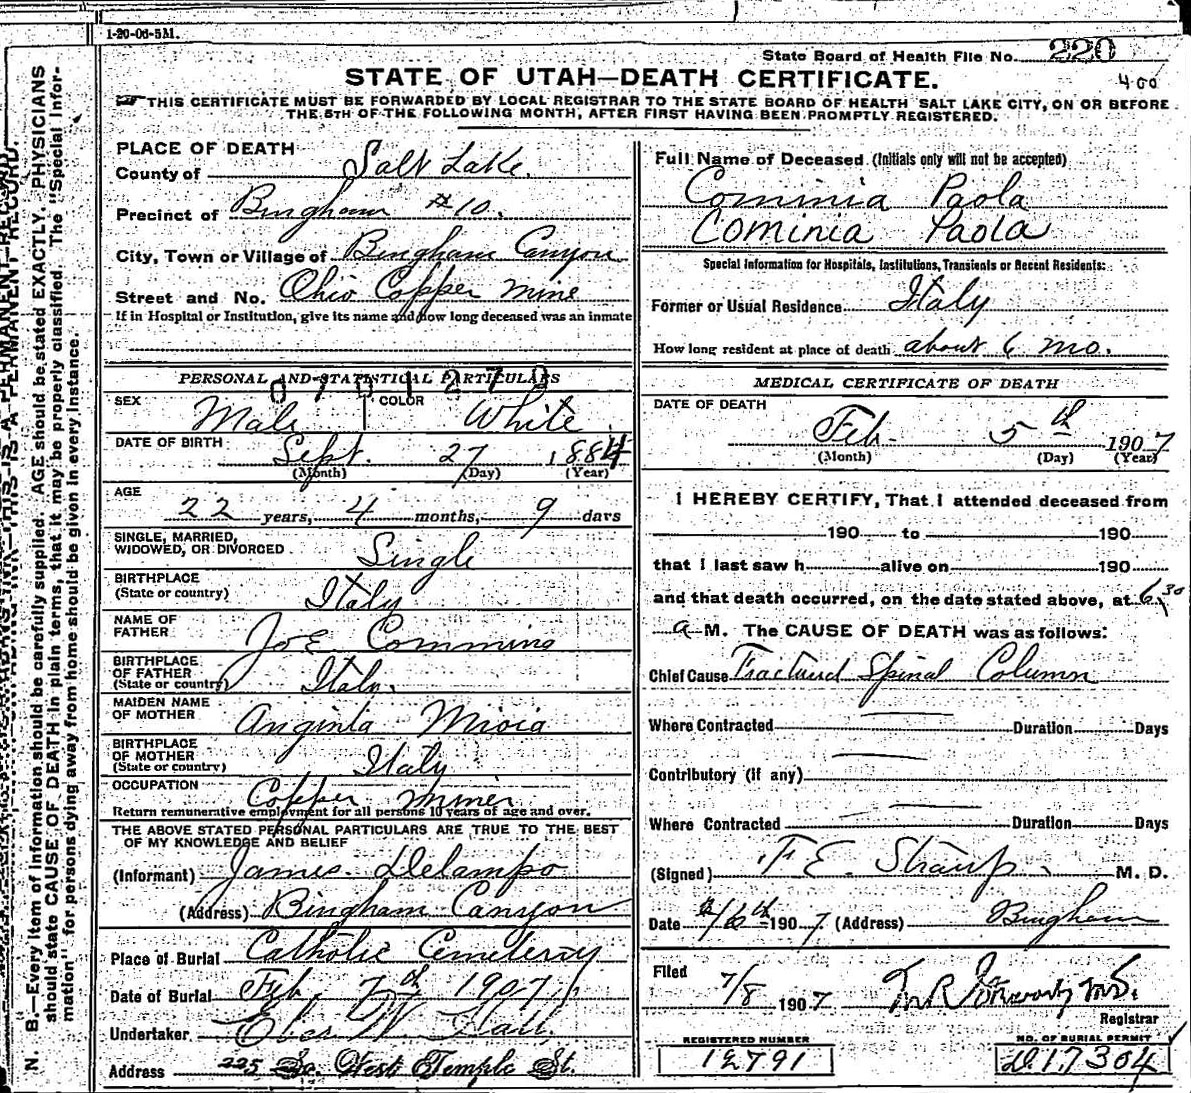 1-20-06-5M.
State Board of Health File No. 220
400
STATE OF UTAH—DEATH CERTIFICATE.
THIS CERTIFICATE MUST BE FORWARDED BY LOCAL REGISTRAR TO THE STATE BOARD OF HEALTH SALT LAKE CITY, ON OR BEFORE
THE 5TH OF THE FOLLOWING MONTH, AFTER FIRST HAVING BEEN PROMPTLY REGISTERED.
N. B.—Every item of information should be carefully supplied. AGE should be stated EXACTLY. PHYSICIANS
should state CAUSE OF DEATH in plain terms, that it may be properly classified. The "Special Infor-
mation" for persons dying away from home should be given in every instance.
PLACE OF DEATH
County of Salt Lake.
Precinct of Bingham #10.
City, Town or Village of Bingham Canyon
Street and No. Ohio Copper Mine
If in Hospital or Institution, give its name and how long deceased was an inmate
PERSONAL AND STATISTICAL PARTICULARS
SEX Male COLOR White
DATE OF BIRTH Sept. 27 1884
(Month) (Day) (Year)
AGE
22 years, 4 months, 9 days
SINGLE, MARRIED,
WIDOWED, OR DIVORCED Single
BIRTHPLACE
(State or country) Italy
NAME OF
FATHER Joe Commino
BIRTHPLACE
OF FATHER
(State or country) Italy
MAIDEN NAME
OF MOTHER
BIRTHPLACE
OF MOTHER
(State or country) Italy
OCCUPATION Copper Miner
Return remunerative employment for all persons 10 years of age and over.
THE ABOVE STATED PERSONAL PARTICULARS ARE TRUE TO THE BEST
OF MY KNOWLEDGE AND BELIEF
(Informant) James Delampo
(Address) Bingham Canyon
Place of Burial Catholic Cemetery
Date of Burial Feb. 7th 1907
Undertaker Eber W. Hall
Address 225 So. West Temple St.
Full Name of Deceased (Initials only will not be accepted)
Cominia Paola
Cominia Paola
Special Information for Hospitals, Institutions, Transients or Recent Residents:
Former or Usual Residence Italy
How long resident at place of death about 6 mo.
MEDICAL CERTIFICATE OF DEATH
DATE OF DEATH
Feb. 5th 1907
(Month) (Day) (Year)
I HEREBY CERTIFY, That I attended deceased from
190 to 190
that I last saw h alive on 190
and that death occurred, on the date stated above, at 6:30
a M. The CAUSE OF DEATH was as follows:
Chief Cause Fractured Spinal Column
Where Contracted Duration Days
Contributory (if any)
Where Contracted Duration Days
(Signed) F. E. Straup M. D.
Date 6th 1907 (Address) Bingham
Filed 7/8 1907
Registrar
REGISTERED NUMBER
12791
NO. OF BURIAL PERMIT
D.17304